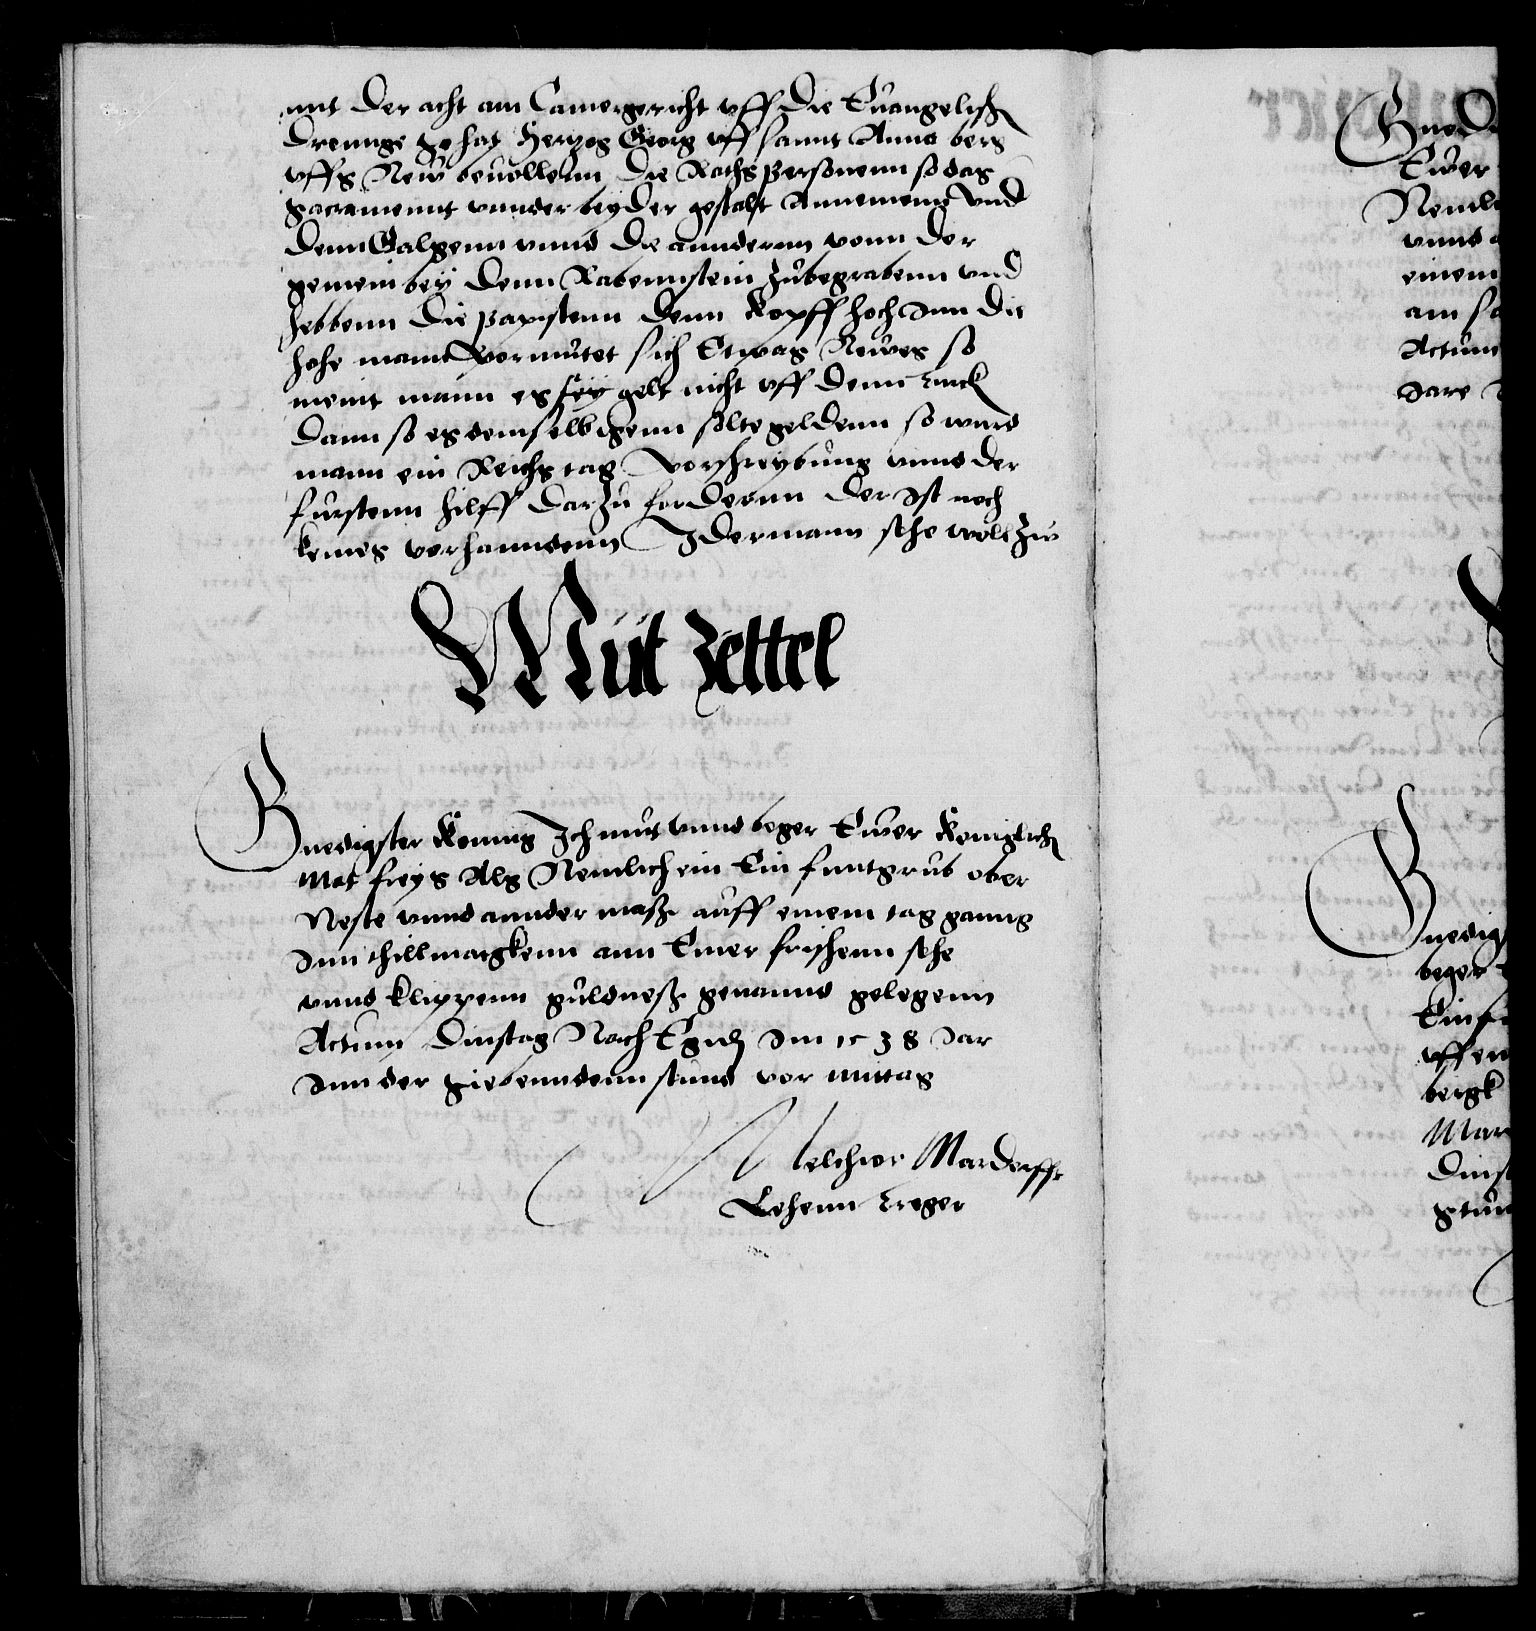 mit der acht am Camergericht vff die Euangelisch
drennge so hat Hertzog Georg vff sannt Anna berg
vffs New beuollenn die Raths personenn so das
Sacrament vnnder beyder gestalt Annemenn vnd
denn Galgenn vnnd die annderenn vonn der
gemein bey denn Rabennstein zubegrabenn vnd
hebbenn die papistenn denn kopff hoch Inn die
hohe mann vormutet sich Etwas Newes so
meint mann es sey gelt nicht vff denn
dann so es demselbigenn solte geldenn so wurd
mann ein Reichs tag vorschreybung vnnd der
furstenn hilff darzu forderenn der Ist noch
keines vorhanndenn Idermann sehe woll zu
Mut zettel
Gnedigster konnig Ich mut vnnd beger Ewer koniglich
Mat freys Als Nemlich ein Ein funtgrub ober
Neste vnnd annder masz auff einem tag ganng
Inn thillmargkenn ann Einer frischenn sehe
vnnd klippenn guldnesz genannd gelegenn
Actum Dinstag Nach Egidy Im 1538 Jar
Inn der siebenndenn stund vor mittag
Melchior Mardorff
Lehenn treger
Gnedi
Ewer
Neml
vnnd
einem
am sa
Actum
Jare
Gnedigs
beger
Ein fu
vff ein
bergk
Mar
Dinst
stun